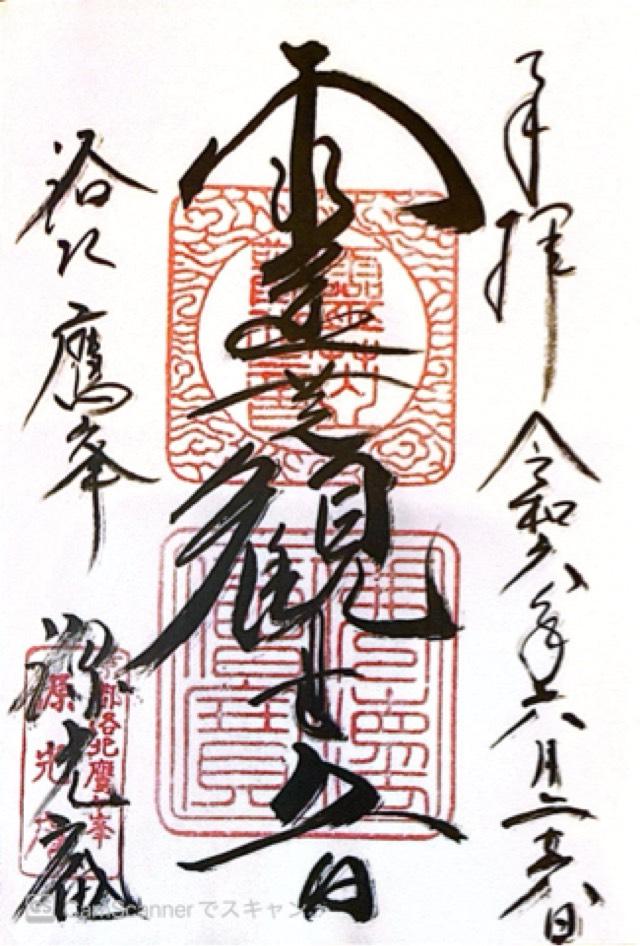 奉拝
令和六年六月二十日
霊芝観世音
洛北 鷹峯
源光庵
京都洛北鷹峯
源光庵
CamScannerでスキャン